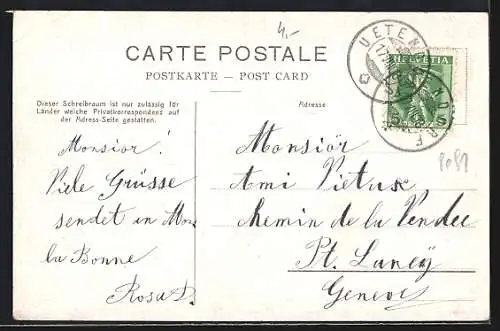 4.-
CARTE POSTALE
POSTKARTE — POST CARD
Dieser Schreibraum ist nur zulässig für
Länder welche Privatkorrespondenz auf
der Adress-Seite gestatten.
Adresse
HELVETIA
5
UETENDORF
Monsior!
Viele Grüsse
sendet in
la Bonne
Rosa
Monsiör
Ami
Chemin de la Vendee
Pt. Lancy
Geneve